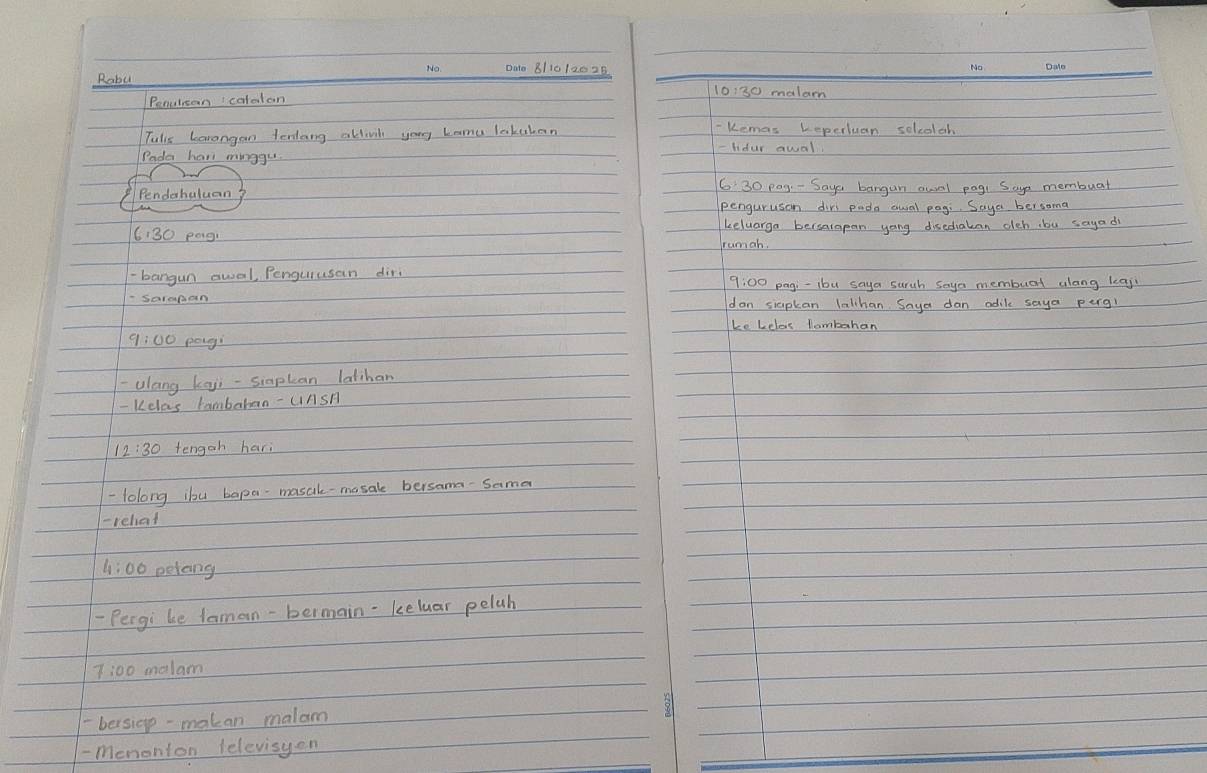 Rabu
No.
Date 8/10/2025
Penulisan : catatan
Tulis karangan tentang aktiviti yang kamu lakukan
Pada hari minggu.
Pendahuluan
6:30 pagi
- bangun awal, Pengurusan diri
- sarapan
9:00 pagi
- ulang kaji - siapkan latihan
- Kelas tambahan - UASA
12:30 tengah hari
- tolong ibu bapa - masak-masak bersama-sama
- rehat
4:00 petang
- Pergi ke taman - bermain - keluar peluh
7:00 malam
- bersiap - makan malam
- Menonton televisyen
No.
Date
10:30 malam
- Kemas keperluan sekolah
- tidur awal.
6:30 pagi - Saya bangun awal pagi Saya membuat
pengurusan diri pada awal pagi. Saya bersama
keluarga bersarapan yang disediakan oleh ibu saya di
rumah.
9:00 pagi - ibu saya suruh saya membuat ulang kaji
dan siapkan latihan. Saya dan adik saya pergi
ke kelas tambahan
B6025